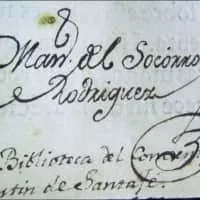 Man. del Socorro
Rodriguez
Biblioteca del Conven
tin de Santafé.